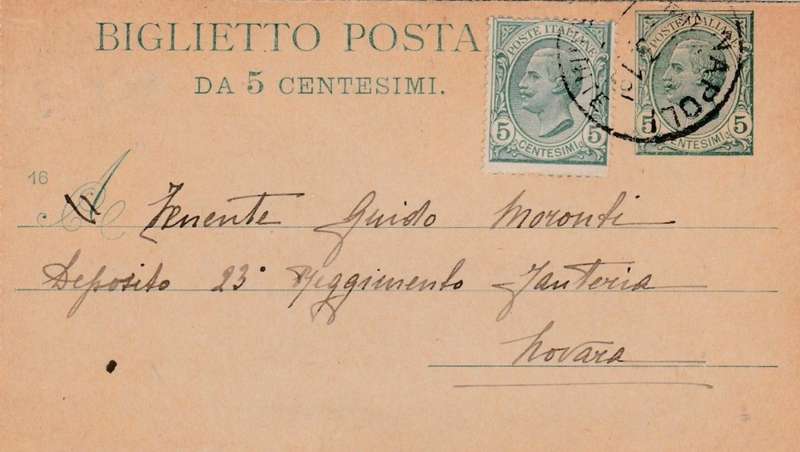 BIGLIETTO POSTA
DA 5 CENTESIMI.
POSTE ITALIANE
5 5
CENTESIMI
POSTE ITALIANE
5 5
CENTESIMI
NAPOLI
16
A Tenente Guido Moronti
Deposito 23° Reggimento Fanteria
Novara